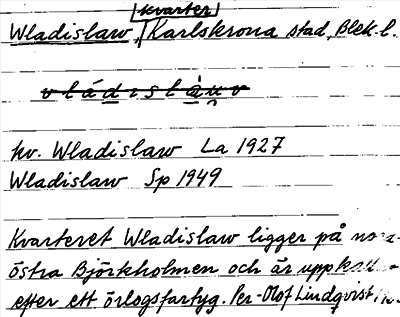 kvarter
Wladislaw, Karlskrona stad, Blek. l.
vládıslȧu̯v
kv. Wladislaw La 1927
Wladislaw Sp 1949
Kvarteret Wladislaw ligger på
östra Björkholmen och är
efter ett örlogsfartyg. Per-Olof Lindqvist